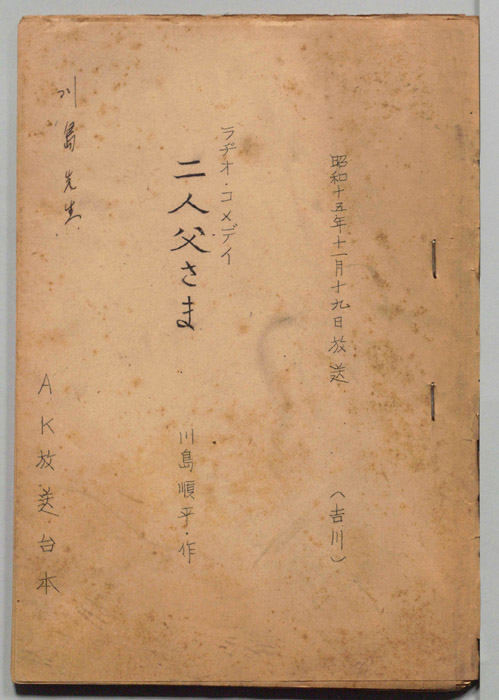 昭和十五年十一月十九日放送
（吉川）
ラヂオ・コメデイ
二人父さま
川島順平・作
川島先生
AK放送台本